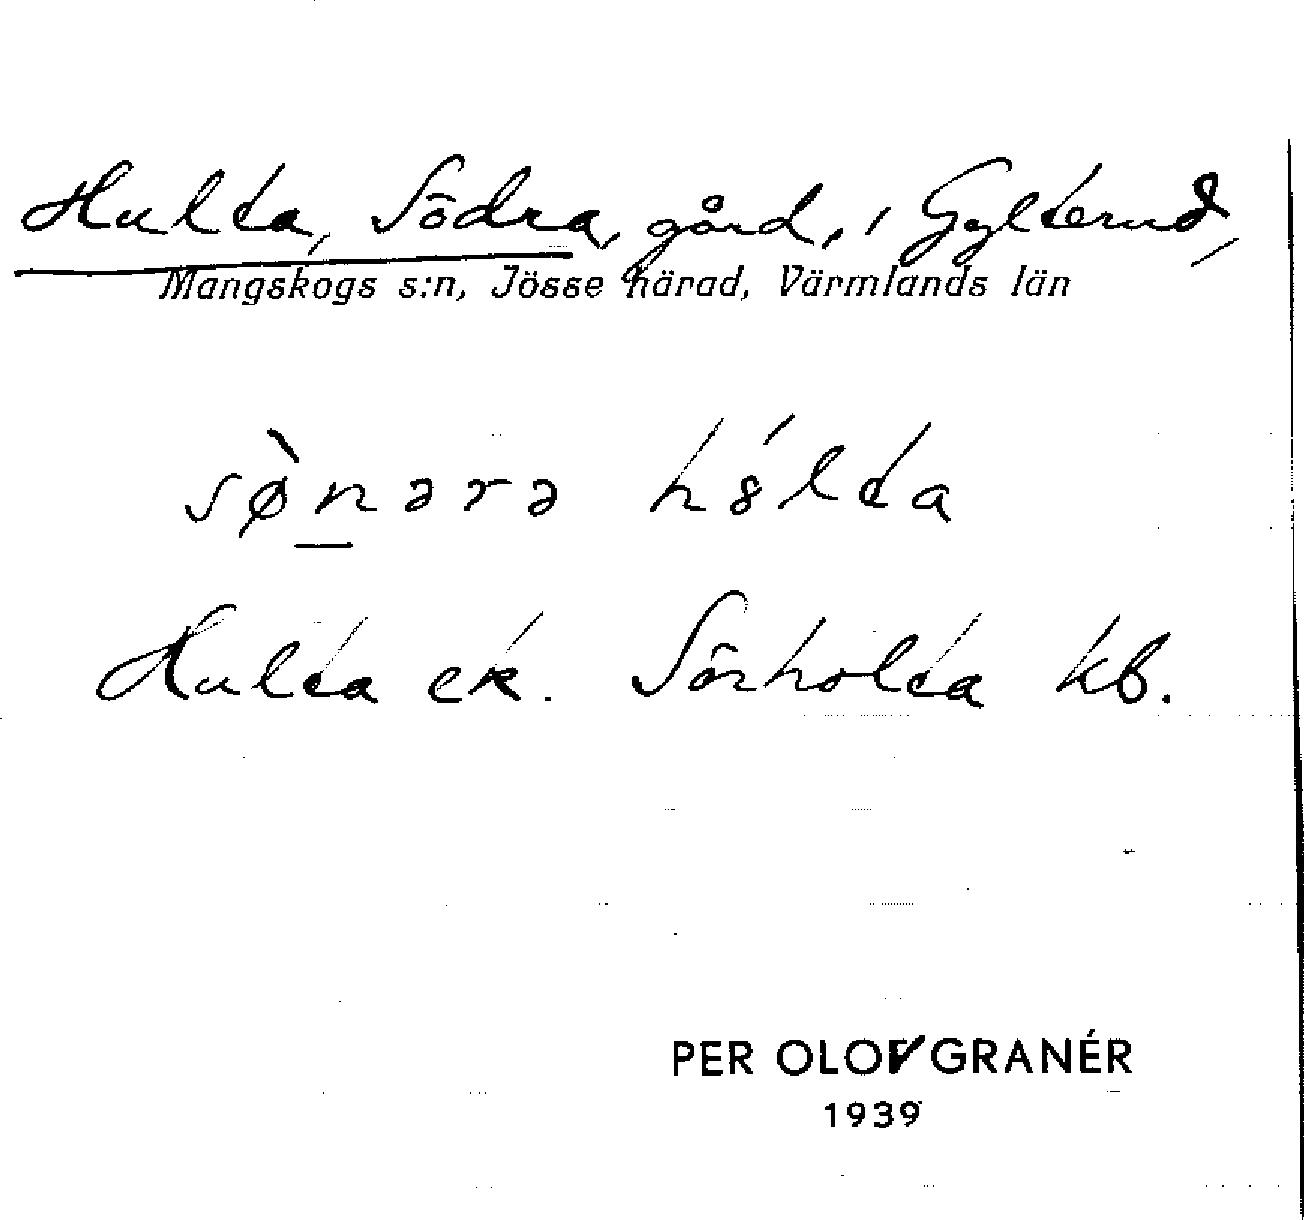 Hulta, Södra, gård, i Gylterud,
Mangskogs s:n, Jösse härad, Värmlands län
sø̀nərə hó8lta
Hulta ek. Sörholta kb.
PER OLOV GRANÉR
1939